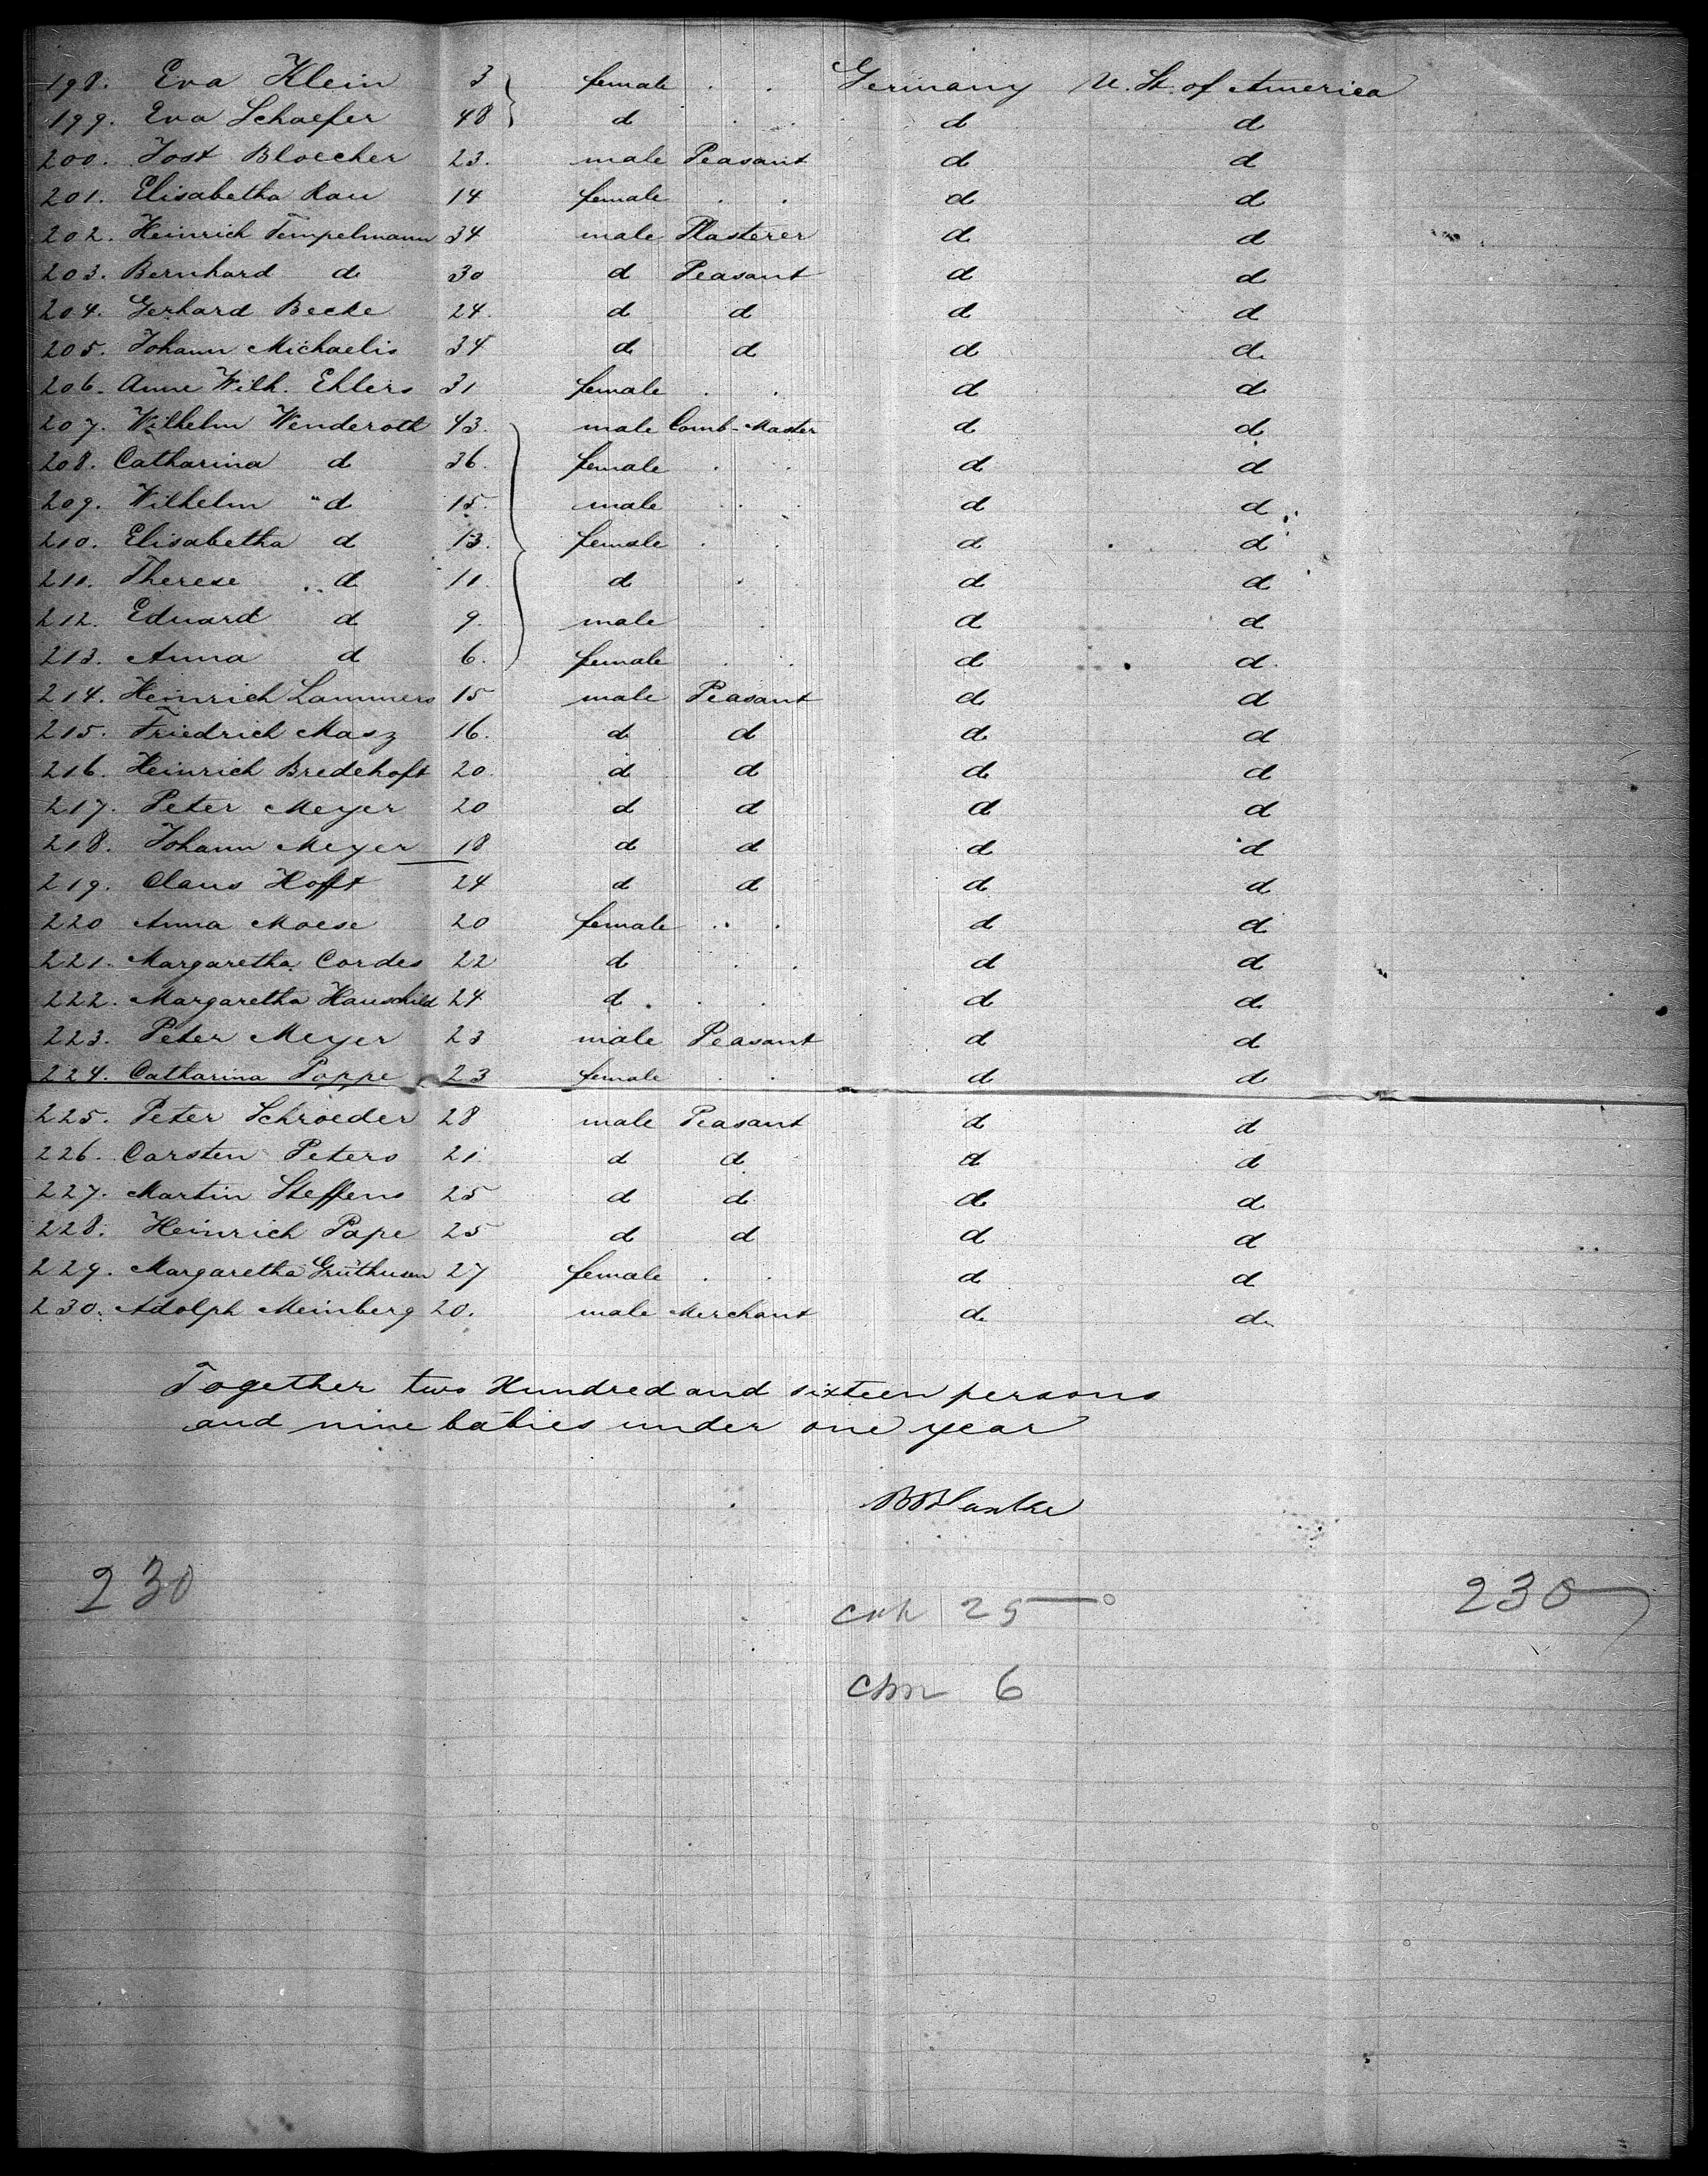 198. Eva Klein 3 female . . Germany U. St. of America
199. Eva Schaefer 48 d . . d d
200. Jost Bloecher 23. male Peasant d d
201. Elisabetha Rau 14 female . . d d
202. Heinrich Tempelmann 34 male Plasterer d d
203. Bernhard d 30 d Peasant d d
204. Gerhard Becke 24. d d d d
205. Johann Michaelis 34 d d d d
206. Anne Wilh. Ehlers 31 female . . d d
207. Wilhelm Wenderoth 43. male Comb-Master d d
208. Catharina d 36. female . . d d
209. Wilhelm d 15. male . . d d
210. Elisabetha d 13. female . . d d
211. Therese d 11. d . d d
212. Eduard d 9. male . d d
213. Anna d 6. female . . d d
214. Heinrich Lammers 15 male Peasant d d
215. Friedrich Masz 16. d d d d
216. Heinrich Bredehoft 20. d d d d
217. Peter Meyer 20 d d d d
218. Johann Meyer 18 d d d d
219. Claus Hofft 24 d d d d
220 Anna Moese 20 female . . d d
221. Margaretha Cordes 22 d . . d d
222. Margaretha Hauschild 24 d . . d d
223. Peter Meyer 23 male Peasant d d
224. Catharina Poppe 23 female . . d d
225. Peter Schroeder 28 male Peasant d d
226. Carsten Peters 21. d d d d
227. Martin Steffens 25 d d d d
228. Heinrich Pape 25 d d d d
229. Margaretha 27 female . . d d
230. Adolph Meinberg 20. male Merchant d d
Together two Hundred and sixteen persons
and nine babies under one year
230 25 230
6